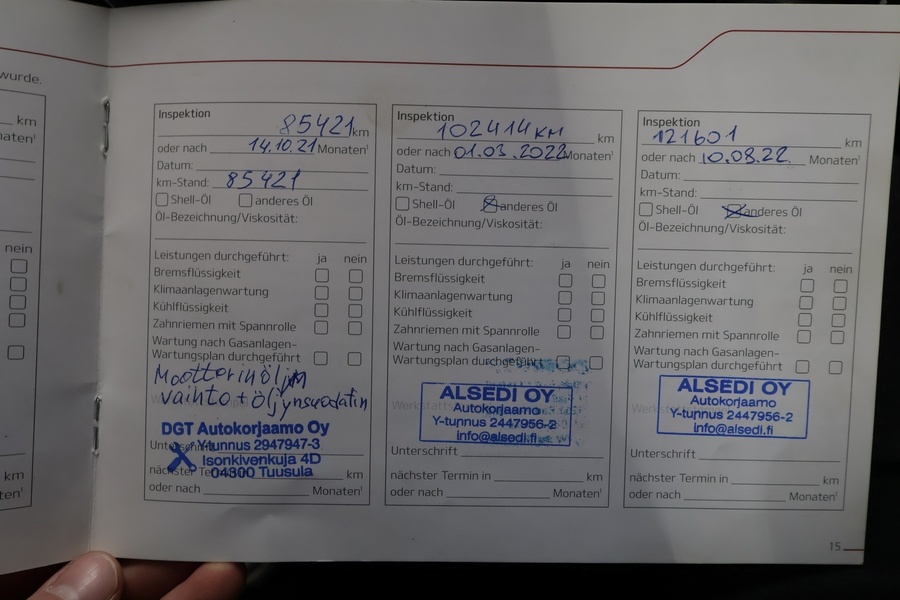 wurde.
km
nein
Inspektion
85421 km
oder nach 14.10.21 Monaten¹
Datum:
km-Stand: 85421
Shell-Öl anderes Öl
Öl-Bezeichnung/Viskosität:
Leistungen durchgeführt: ja nein
Bremsflüssigkeit
Klimaanlagenwartung
Kühlflüssigkeit
Zahnriemen mit Spannrolle
Wartung nach Gasanlagen-
Wartungsplan durchgeführt
Moottorinöljyn
vaihto + öljynsuodatin
DGT Autokorjaamo Oy
Y-tunnus 2947947-3
Isonkivenkuja 4D
04300 Tuusula
oder nach Monaten¹
Inspektion
102414 KM km
oder nach 01.03.2022 Monaten¹
Datum:
km-Stand:
Shell-Öl anderes Öl
Öl-Bezeichnung/Viskosität:
Leistungen durchgeführt: ja nein
Bremsflüssigkeit
Klimaanlagenwartung
Kühlflüssigkeit
Zahnriemen mit Spannrolle
Wartung nach Gasanlagen-
Wartungsplan durchgeführt
ALSEDI OY
Autokorjaamo
Y-tunnus 2447956-2
info@alsedi.fi
Unterschrift
nächster Termin in km
oder nach Monaten¹
Inspektion
121601 km
oder nach 10.08.22. Monaten¹
Datum:
km-Stand:
Shell-Öl anderes Öl
Öl-Bezeichnung/Viskosität:
Leistungen durchgeführt: ja nein
Bremsflüssigkeit
Klimaanlagenwartung
Kühlflüssigkeit
Zahnriemen mit Spannrolle
Wartung nach Gasanlagen-
Wartungsplan durchgeführt
ALSEDI OY
Autokorjaamo
Y-tunnus 2447956-2
info@alsedi.fi
Unterschrift
nächster Termin in km
oder nach Monaten¹
15